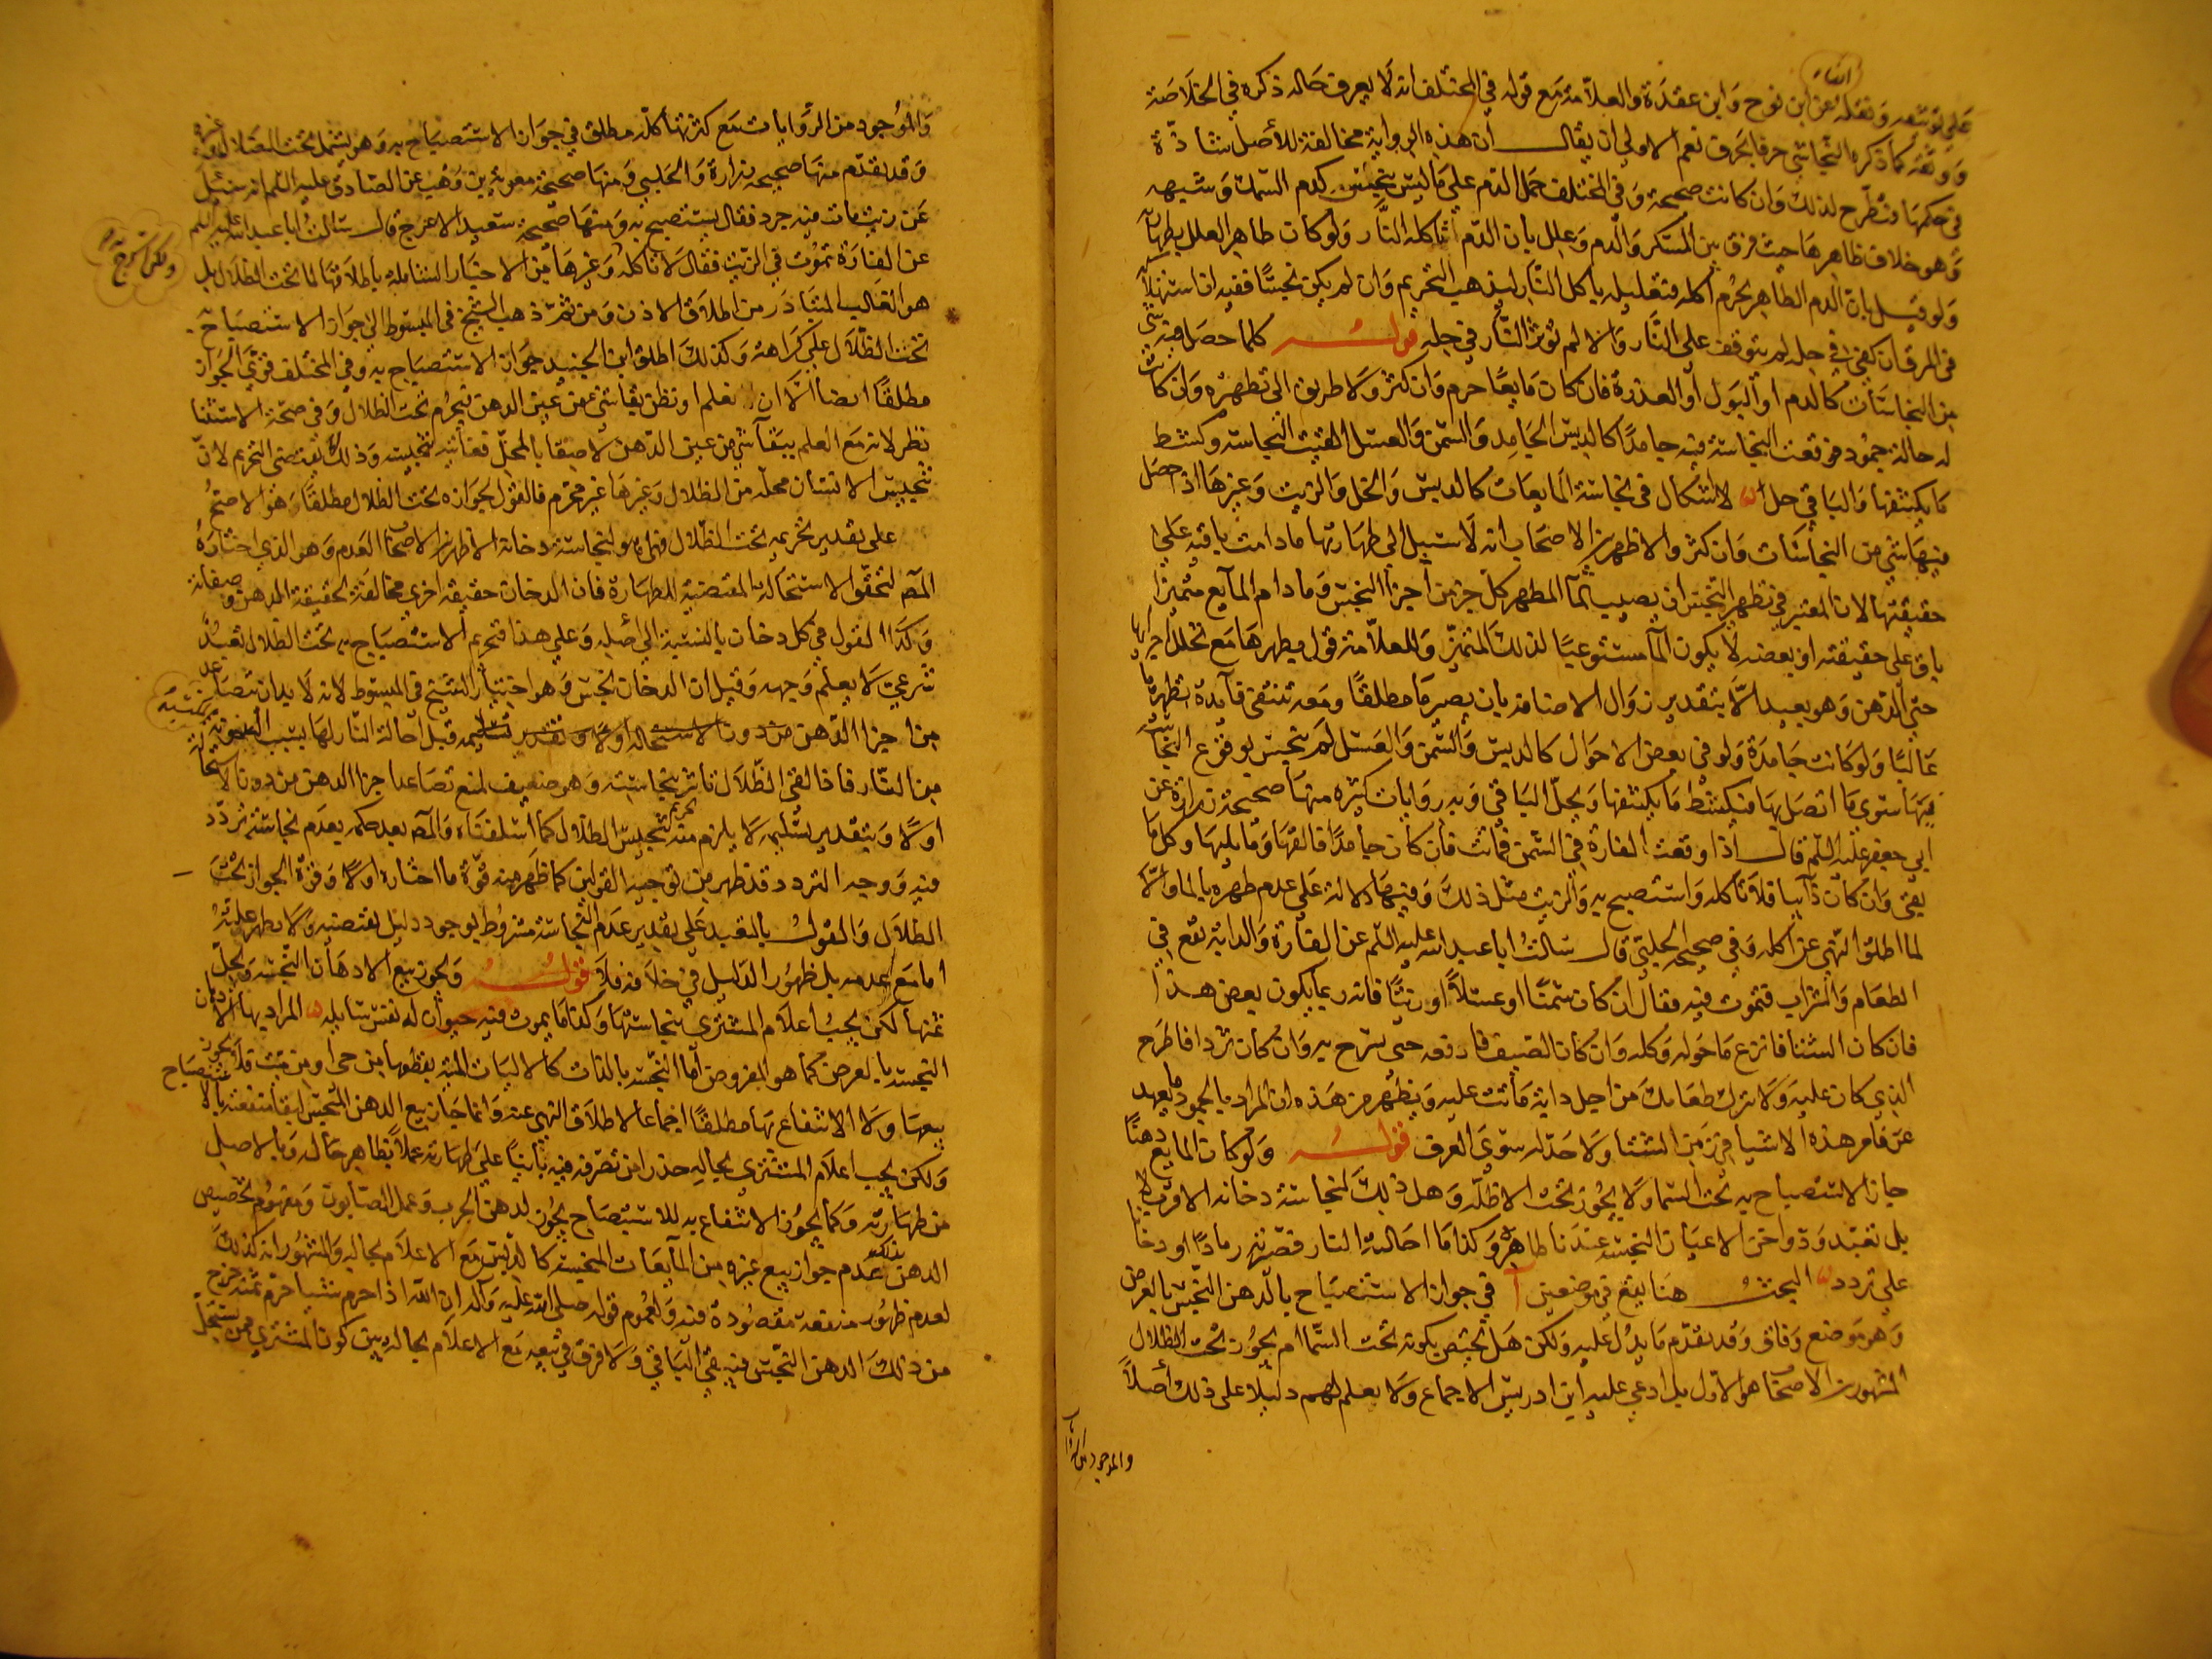 الثناء
على توثيقه ونقله عن ابن نوح وابن عقدة والعلامة مع قوله في المختلف انه لا يعرف حاله ذكره في الخلاصة
ووثقه كما ذكره النجاشي حرفا بحرف نعم الاولى ان يقال ان هذه الرواية مخالفة للأصل شاذة
في حكمها فتطرح لذلك وان كانت صحيحة وفي المختلف حمل الدم على ما ليس بنجس كدم السمك وشبهه
وهو خلاف ظاهرها حيث فرق بين المسكر والدم وعلل بان الدم تاكله النار ولو كان طاهرا لعلل بطهارته
ولو قيل بان الدم الطاهر يحرم اكله فتعليله باكل النار ليذهب التحريم وان لم يكن نجسا ففيه ان استهلاكه
في المرق ان كفى في حله لم يتوقف على النار والا لم تؤثر النار في حله قوله كلما حصل فيه شي
من النجاسات كالدم او البول او العذرة فان كان مايعا حرم وان كثر ولا طريق الى تطهيره وان كانت
له حالة جمود فوقعت النجاسة فيه جامدا كالدبس الجامد والسمن والعسل القيت النجاسة وكشط
ما يكتنفها والباقي حل لا اشكال في نجاسة المايعات كالدبس والخل والزيت وغيرها اذا حصل
فيها شي من النجاسات وان كثر والاظهر من الاصحاب انه لا سبيل الى طهارتها ما دامت باقية على
حقيقتها لان المعتبر في تطهير النجس ان يصيب الماء المطهر كل جزء من اجزاء النجس وما دام المايع متميزا
باق على حقيقته او بعضه لا يكون الماء مستوعبا لذلك المتميز وللعلامة قول بطهرها مع تخلل اجزائها
حتى الدهن وهو بعيد الا بتقدير زوال الاضافة بان يصير ماء مطلقا ومعه تنتفي فايدة تطهيره
غالبا ولو كانت جامدة ولو في بعض الاحوال كالدبس والسمن والعسل لم ينجس بوقوع النجاسة
فيها سوى ما اتصل بها فيكشط ما يكتنفها ويحل الباقي وبه روايات كثيرة منها صحيحة زرارة عن
ابي جعفر عليه السلم قال اذا وقعت الفارة في السمن فماتت فان كان جامدا فالقها وما يليها وكل ما
بقي وان كان ذايبا فلا تاكله واستصبح به والزيت مثل ذلك وفيها دلالة على عدم طهره بالماء والا
لما اطلق النهي عن اكله وفي صحيح الحلبي قال سالت ابا عبد الله عليه السلم عن الفارة والدابة تقع في
الطعام والشراب فتموت فيه فقال ان كان سمنا او عسلا او زيتا فانه ربما يكون بعض هذا
فان كان الشتا فانزع ما حوله وكله وان كان الصيف فادفعه حتى تسرج به وان كان ثردا فاطرح
الذي كان عليه ولا تترك طعامك من اجل دابة ماتت عليه ويظهر من هذه ان المراد بالجمود ما يعهد
عن ظاهر هذه الاشيا في زمن الشتا ولا حد له سوى العرف قوله ولو كان المايع دهنا
جاز الاستصباح به تحت السما ولا يجوز تحت الاظلة وهل ذلك لنجاسة دخانه الاقرب لا
بل تعبد ودواخن الاعيان النجسة عندنا طاهرة وكذا ما احالته النار فصيرته رمادا او دخانا
على تردد البحث هنا يقع في موضعين آ في جواز الاستصباح بالدهن النجس بالعرض
وهو موضع وفاق وقد تقدم ما يدل عليه ولكن هل يختص بكونه تحت السما ام يجوز تحت الظلال
المشهور بين الاصحاب هو الاول بل ادعى عليه ابن ادريس الاجماع ولا يعلم لهم دليلا على ذلك أصلا
والموجود من الروايات
والموجود من الروايات مع كثرتها كله مطلق في جواز الاستصباح به وهو يشمل تحت الظلال وغيره
وقد تقدم منها صحيحة زرارة والحلبي ومنها صحيحة معوية بن وهب عن الصادق عليه السلم انه سئل
عن زيت مات فيه جرذ فقال يستصبح به ومنها صحيحة سعيد الاعرج قال سالت ابا عبد الله عليه السلم
عن الفارة تموت في الزيت فقال لا تاكله وغيرها من الاخبار الشاملة باطلاقها لما تحت الظلال بل
ولكن اسرج به
هو الغالب المتبادر من اطلاق الاذن ومن ثمة ذهب الشيخ في المبسوط الى جواز الاستصباح به
تحت الظلال على كراهة وكذلك اطلق ابن الجنيد جواز الاستصباح به وفي المختلف قوى الجواز
مطلقا ايضا الا ان نعلم او نظن بقاء شي من عين الدهن فيحرم تحت الظلال وفي صحة الاستثنا
نظر لانه مع العلم ببقاء شي من عين الدهن لاصقا بالمحل فغايته تنجيسه وذلك لا يقتضي التحريم لان
تنجيس الانسان محله من الظلال وغيرها غير محرم فالقول بجوازه تحت الظلال مطلقا هو الاصح
على تقدير تحريمه تحت الظلال فهل هو لنجاسة دخانه الاظهر بين الاصحاب العدم وهو الذي اختاره
المصـ لتحقق الاستحالة المقتضية للطهارة فان الدخان حقيقة اخرى مخالفة لحقيقة الدهن وصفاته
وكذا القول في كل دخان بالنسبة الى أصله وعلى هذا فتحريم الاستصباح به تحت الظلال تعبد
شرعي لا يعلم وجهه وقيل ان الدخان نجس وهو اختيار الشيخ في المبسوط لانه لا بد ان تتصاعد
من اجزا الدهن من دون الاستحالة اولا وبتقدير تسليمه قبل احالة النار لها بسبب السخونة المكتسبة
من النار فاذا لقي الظلال تاثر بنجاسته وهو ضعيف لمنع تصاعد اجزا الدهن من دون الاستحالة
اولا وبتقدير تسليمه لا يلزم منه تحريم تنجيس الظلال كما اسلفناه والمصـ بعد حكمه بعدم نجاسته تردد
فيه ووجه التردد قد ظهر من توجيه القولين كما ظهر منه قوة ما اختاره اولا وقوة الجواز تحت
الظلال والقول بالتعبد على تقدير عدم النجاسة مشروط بوجود دليل يقتضيه ولا يظهر علته
اما مع عدمه بل ظهور الدليل في خلافه فلا قوله ويجوز بيع الادهان النجسة ويحل
ثمنها لكن يجب اعلام المشتري بنجاستها وكذا ما يموت فيه حيوان له نفس سايلة المراد بها الادهان
النجسة بالعرض كما هو المفروض أما النجسة بالذات كالاليات الميتة يقطعها من حي او من ميت فلا يجوز
بيعها ولا الانتفاع بها مطلقا اجماعا لاطلاق النهي عنه وانما جاز بيع الدهن النجس لبقا منفعته بالاستصباح
ولكن يجب اعلام المشتري بحاله حذرا من تصرفه فيه بانيا على طهارته عملا بظاهر حاله وبالاصل
من طهارته وكما يجوز الانتفاع به للاستصباح يجوز لدهن الجرب وعمل الصابون ومفهوم تخصيص
الدهن بذلك عدم جواز بيع غيره من المايعات النجسة كالدبس مع الاعلام بحاله والمشهور انه كذلك
لعدم ظهور منفعة مقصودة فيه ولعموم قوله صلى الله عليه وآله ان الله اذا حرم شيئا حرم ثمنه خرج
من ذلك الدهن النجس فيبقى الباقي ولا فرق في بيعه مع الاعلام بحاله بين كون المشتري ممن يستحل